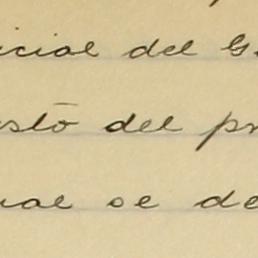 icial del G
esto del pr
ual se de